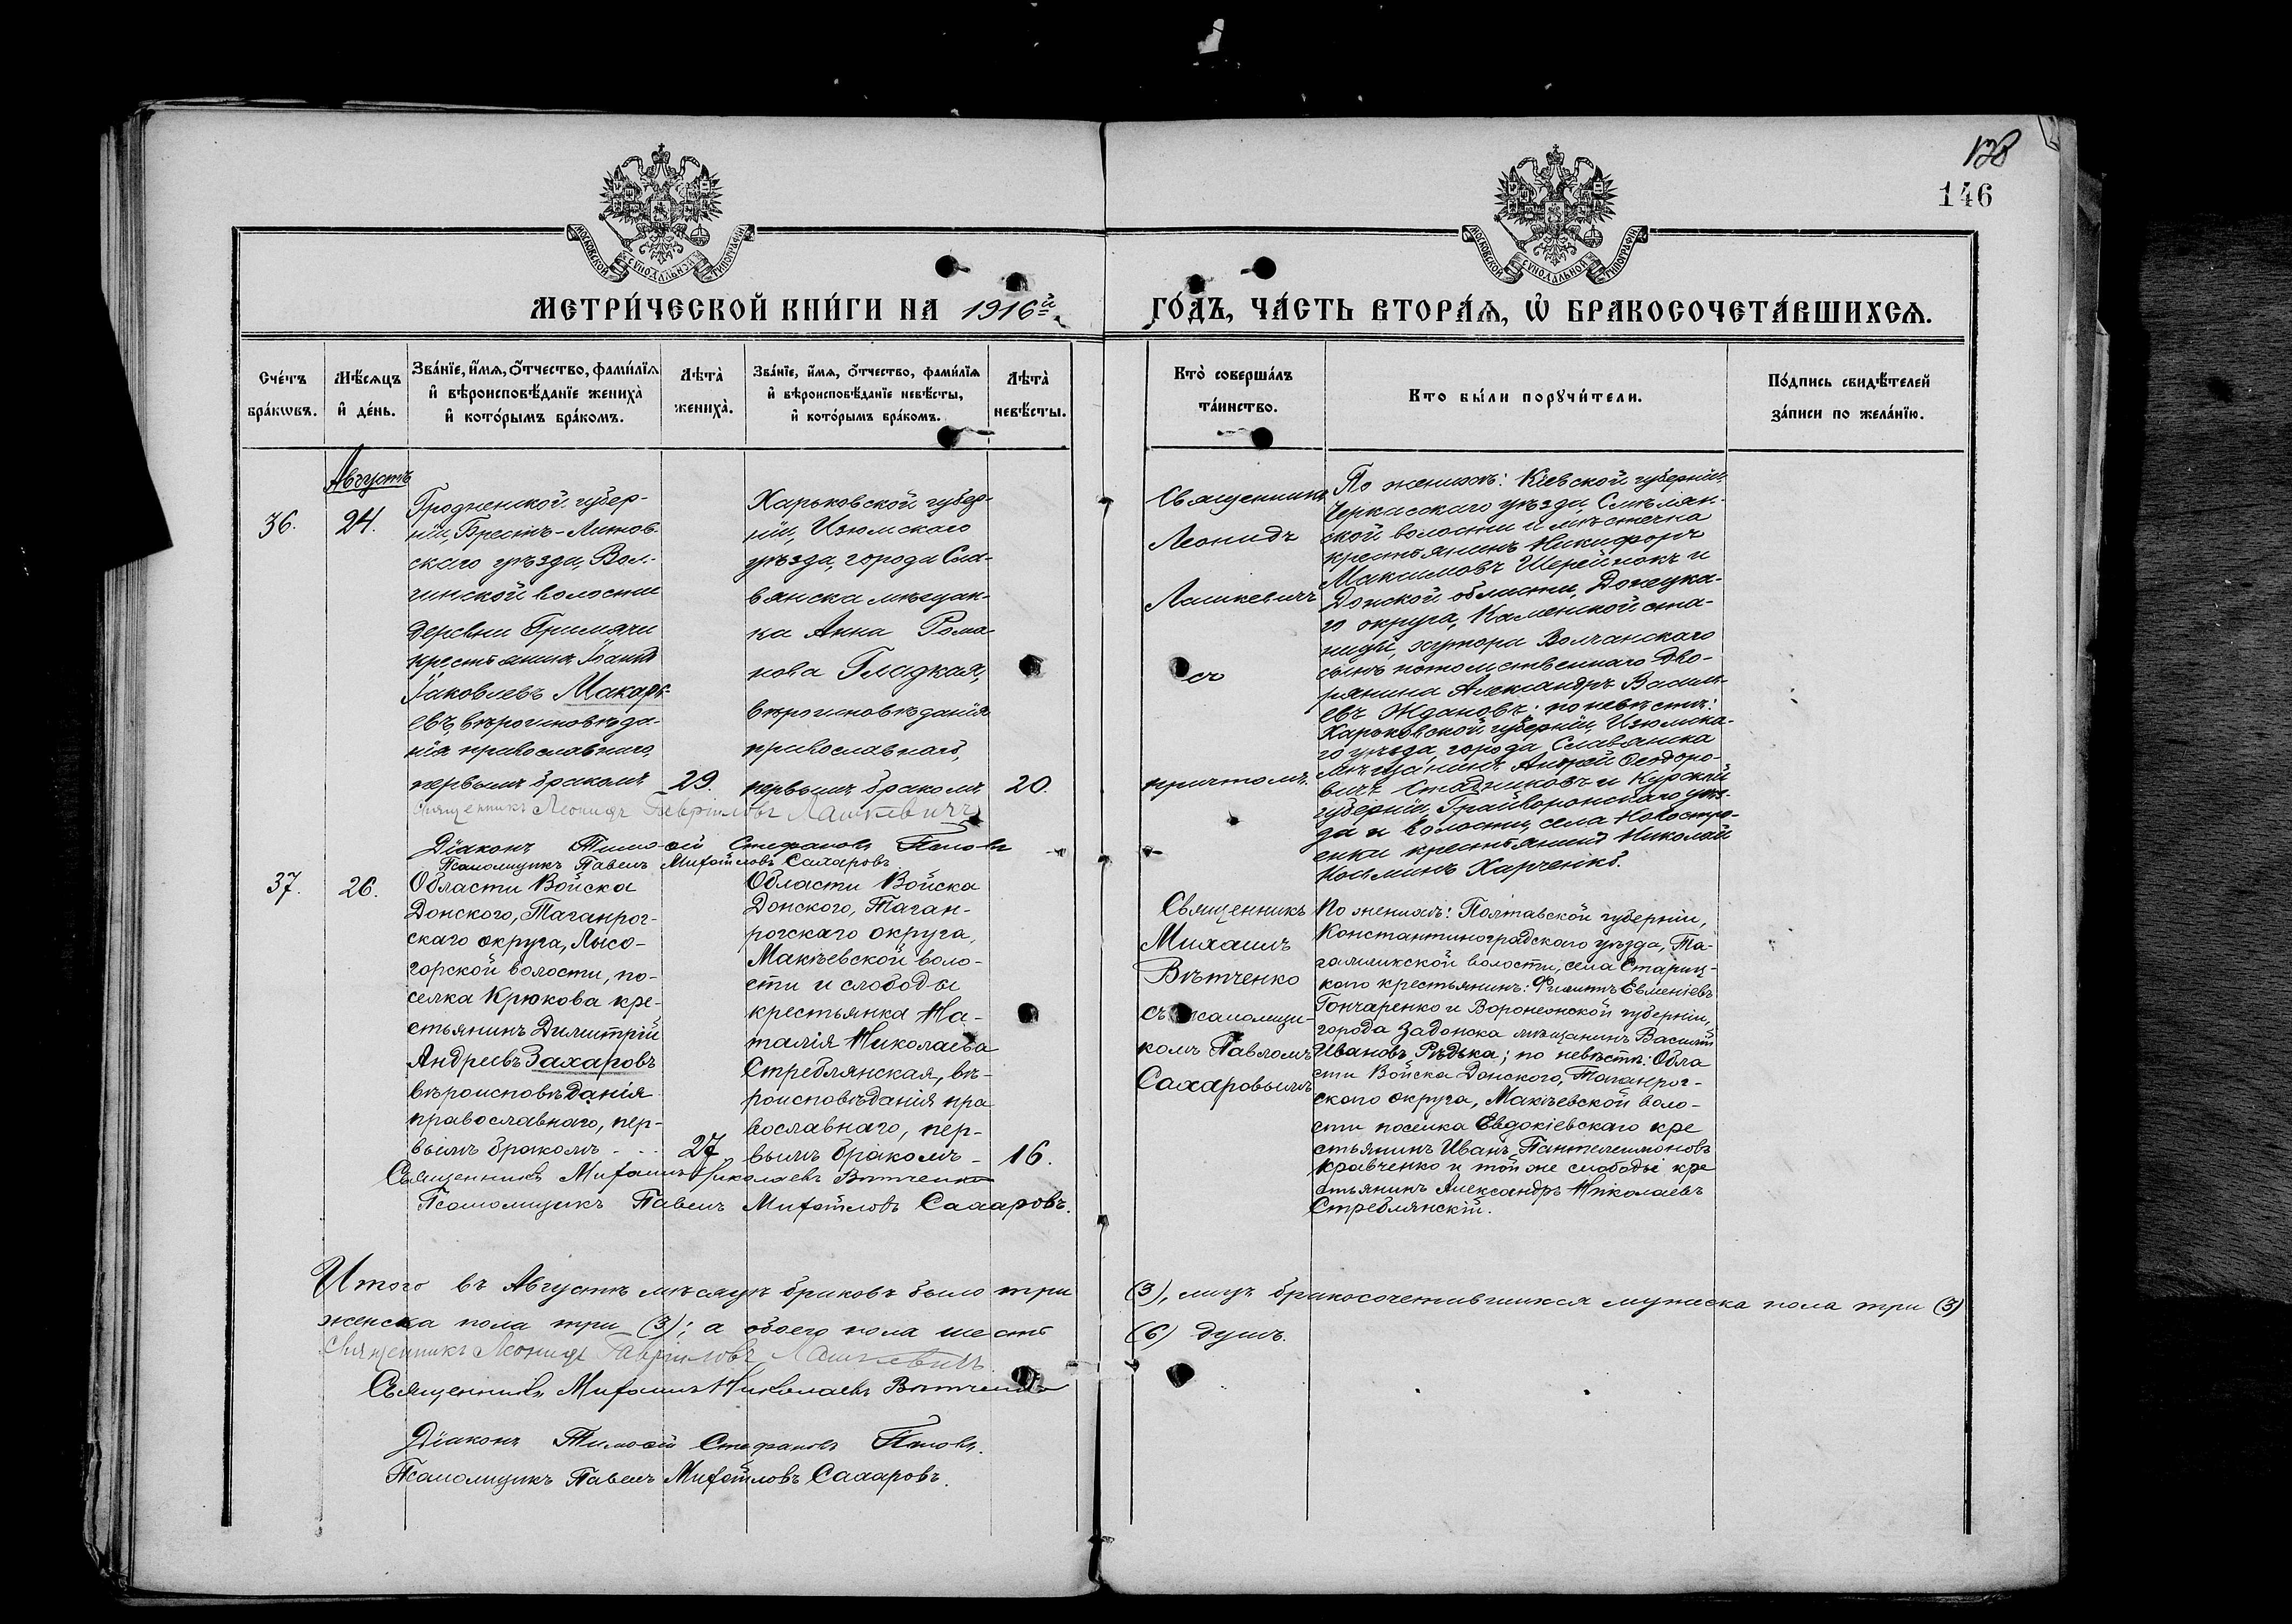 138
146
МОСКОВСКОЙ СѴНОДАЛЬНОЙ ТИПОГРАФІИ
МОСКОВСКОЙ СѴНОДАЛЬНОЙ ТИПОГРАФІИ
МЕТРИ́ЧЕСКОЙ КНИ́ГИ НА 1916й ГО́ДЪ, ЧА́СТЬ ВТОРА́Ѧ, Ѡ҆ БРАКОСОЧЕТА́ВШИХСѦ.
Сче́тъ бра́кѡвъ.
Мѣ́сяцъ и҆ де́нь.
Зва́нїе, и҆́мѧ, ѻ҆́тчество, фами́лїѧ и҆ вѣроисповѣ́данїе жениха̀ и҆ кото́рымъ бра́комъ.
Лѣта̀ жениха̀.
Зва́нїе, и҆́мѧ, ѻ҆́тчество, фами́лїѧ и҆ вѣроисповѣ́данїе невѣ́сты, и҆ кото́рымъ бра́комъ.
Лѣта̀ невѣ́сты.
Кто̀ соверша́лъ та́инство.
Кто бы́ли порꙋчи́тели.
По́дпись свидѣ́телей за́писи по жела́нїю.
Августъ
36.
24.
Гродненской губер-
нiи, Брестъ-Литов-
скаго уѣзда, Вол-
чинской волости
деревни Гримячи
крестьянинъ Іоаннъ
Іаковлевъ Макарь-
евъ, вѣроисповѣда-
нія православнаго,
первымъ бракомъ
29.
Харьковской губер-
ніи, Изюмскаго
уѣзда, города Сла-
вянска мѣщан-
ка Анна Рома-
нова Гладкая,
вѣроисповѣданія
православнаго,
первымъ бракомъ
20.
Священникъ
Леонидъ
Лашкевичъ
съ
причтомъ.
По женихѣ: Кіевской губерніи,
Черкасскаго уѣзда, Смѣлян-
ской волости и мѣстечка
крестьянинъ Никифоръ
Максимовъ Шерейнокъ и
Донской области, Донецка-
го округа, Каменской ста-
ницы, хутора Волчанскаго
сынъ потомственнаго дво-
рянина Александръ Василь-
евъ Ждановъ; по невѣстѣ:
Харьковской губерніи, Изюмска-
го уѣзда, города Славянска
мѣщанинъ Андрей Ѳеодоро-
вичъ Стадниковъ и Курской
губерніи, Грайворонскаго уѣз-
да и волости, села Новостро-
енки крестьянинъ Николай
Козьминъ Харченко.
Священникъ Леонидъ Гавріиловъ Лашкевичъ
Діаконъ Тимоѳей Стефановъ Поповъ
Псаломщикъ Павелъ Михайловъ Сахаровъ
37.
26.
Области Войска
Донского, Таганрог-
скаго округа, Лысо-
горской волости, по-
селка Крюкова кре-
стьянинъ Димитрій
Андреевъ Захаровъ
вѣроисповѣданія
православнаго, пер-
вымъ бракомъ
27
Области Войска
Донского, Таган-
рогскаго округа,
Макѣевской воло-
сти и слободы
крестьянка На-
талія Николаева
Стреблянская, вѣ-
роисповѣданія пра-
вославнаго, пер-
вымъ бракомъ
16.
Священникъ
Михаилъ
Вѣтченко
съ псаломщи-
комъ Павломъ
Сахаровымъ
По женихѣ: Полтавской губерніи,
Константиноградскаго уѣзда, Та-
гамликской волости, села Стариц-
каго крестьянинъ: Филиппъ Евменіевъ
Гончаренко и Воронежской губерніи,
города Задонска мѣщанинъ Василій
Ивановъ Рѣдька; по невѣстѣ: Обла
сти Войска Донского, Таганрог-
скаго округа, Макѣевской воло-
сти поселка Евдокіевскаго кре
стьянинъ Иванъ Пантелеимоновъ
Кравченко и той же слободы кре
стьянинъ Александръ Николаевъ
Стреблянскій.
Священникъ Михаилъ Николаевъ Вѣтченко
Псаломщикъ Павелъ Михайловъ Сахаровъ.
Итого въ Августѣ мѣсяцѣ браковъ было три (3), лицъ бракосочетавшихся мужеска пола три (3)
женска пола три (3); а обоего пола шесть (6) душъ.
Священникъ Леонидъ Гавріиловъ Лашкевичъ
Священникъ Михаилъ Николаевъ Вѣтченко
Діаконъ Тимоѳей Стефановъ Поповъ.
Псаломщикъ Павелъ Михайловъ Сахаровъ.